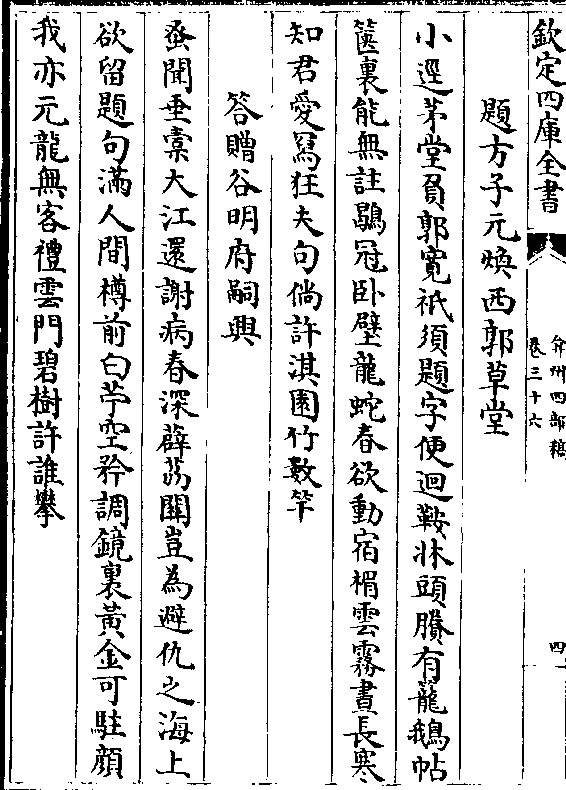 欽定四庫全書
弇州四部稿
卷三十六
四
題方子元煥西郭草堂
小逕茅堂負郭寛祇須題字便迴鞍牀頭賸有籠鵝帖
篋裏能無註鶡冠卧壁龍蛇春欲動宿楣雲霧晝長寒
知君愛冩狂夫句倘許淇園竹數竿
答贈谷明府嗣興
蚤聞垂橐大江還謝病春深薜荔關豈為避仇之海上
欲留題句滿人間樽前白苧空矜調鏡裏黃金可駐顔
我亦元龍無客禮雲門碧樹許誰攀